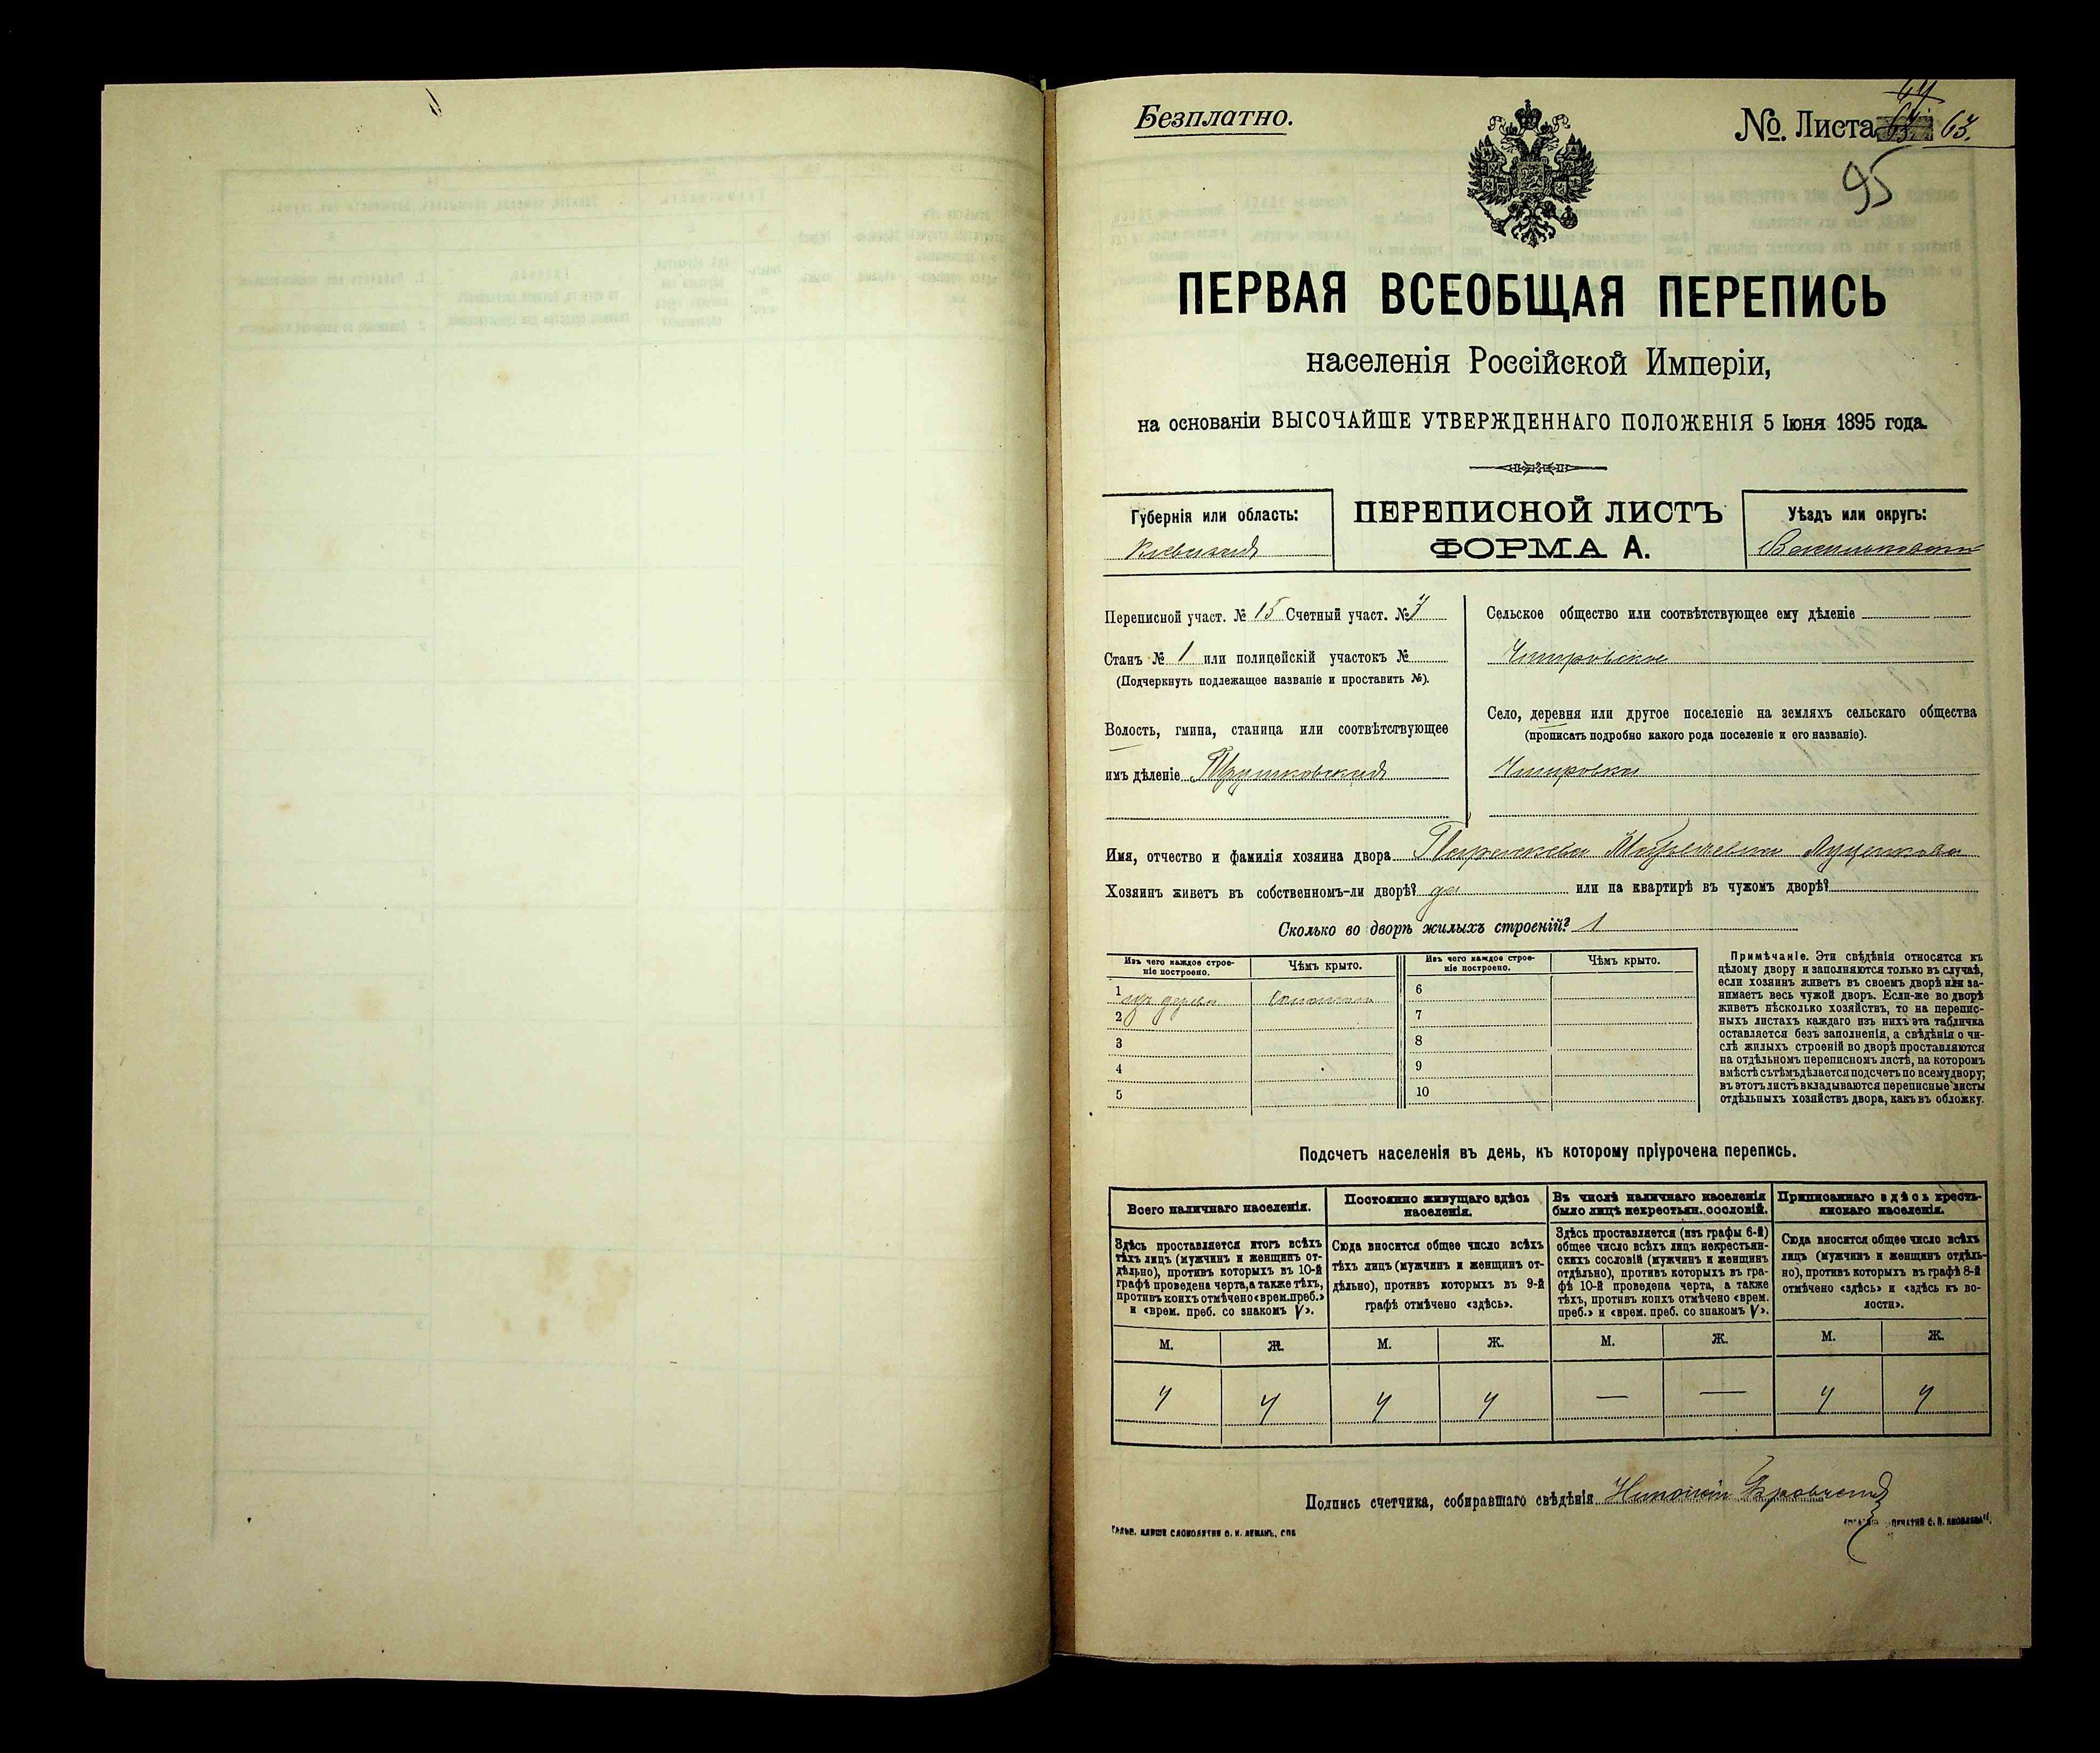 Безплатно.
№ Листа 63.
95
ПЕРВАЯ ВСЕОБЩАЯ ПЕРЕПИСЬ
населенія Россійской Имперіи,
на основаніи ВЫСОЧАЙШЕ УТВЕРЖДЕННАГО ПОЛОЖЕНІЯ 5 Іюня 1895 года.
Губернія или область:
Кіевская
ПЕРЕПИСНОЙ ЛИСТЪ
ФОРМА А.
Уѣздъ или округъ:
Васильковскій
Переписной участ. № 15 Счетный участ. №
Станъ № 1 или полицейскій участокъ №
(Подчеркнуть подлежащее названіе и проставить №).
Волость, гмина, станица или соотвѣтствующее
имъ дѣленіе
Сельское общество или соотвѣтствующее ему дѣленіе
Чипировское
Село, деревня или другое поселеніе на земляхъ сельскаго общества
(прописать подробно какого рода поселеніе и его названіе).
Имя, отчество и фамилія хозяина двора
Хозяинъ живетъ въ собственномъ-ли дворѣ? да или на квартирѣ въ чужомъ дворѣ?
Сколько во дворѣ жилыхъ строеній? 1
Изъ чего каждое строе-
ніе построено.
Чѣмъ крыто.
1 изъ дерева Соломою
2
3
4
5
Изъ чего каждое строе-
ніе построено.
Чѣмъ крыто.
6
7
8
9
10
Примѣчаніе. Эти свѣдѣнія относятся къ
цѣлому двору и заполняются только въ случаѣ,
если хозяинъ живетъ въ своемъ дворѣ или за-
нимаетъ весь чужой дворъ. Если-же во дворѣ
живетъ нѣсколько хозяйствъ, то на перепис-
ныхъ листахъ каждаго изъ нихъ эта табличка
оставляется безъ заполненія, а свѣдѣнія о чи-
слѣ жилыхъ строеній во дворѣ проставляются
на отдѣльномъ переписномъ листѣ, на которомъ
вмѣстѣ съ тѣмъ дѣлается подсчетъ по всему двору;
въ этотъ листъ вкладываются переписные листы
отдѣльныхъ хозяйствъ двора, какъ въ обложку.
Подсчетъ населенія въ день, къ которому пріурочена перепись.
Всего наличнаго населенія.
Здѣсь проставляется итогъ всѣхъ
тѣхъ лицъ (мужчинъ и женщинъ от-
дѣльно), противъ которыхъ въ 10-й
графѣ проведена черта, а также тѣхъ,
противъ коихъ отмѣчено «врем. преб.»
и «врем. преб. со знакомъ V».
М. Ж.
4 4
Постоянно живущаго здѣсь
населенія.
Сюда вносится общее число всѣхъ
тѣхъ лицъ (мужчинъ и женщинъ от-
дѣльно), противъ которыхъ въ 9-й
графѣ отмѣчено «здѣсь».
М. Ж.
4 4
Въ числѣ наличнаго населенія
было лицъ некрестьян. сословій.
Здѣсь проставляется (изъ графы 6-й)
общее число всѣхъ лицъ некрестьян-
скихъ сословій (мужчинъ и женщинъ
отдѣльно), противъ которыхъ въ гра-
фѣ 10-й проведена черта, а также
тѣхъ, противъ коихъ отмѣчено «врем.
преб.» и «врем. преб. со знакомъ V».
М. Ж.
— —
Приписаннаго здѣсь кресть-
янскаго населенія.
Сюда вносится общее число всѣхъ
лицъ (мужчинъ и женщинъ отдѣль-
но), противъ которыхъ въ графѣ 8-й
отмѣчено «здѣсь» и «здѣсь къ во-
лости».
М. Ж.
4 4
Подпись счетчика, собиравшаго свѣдѣнія